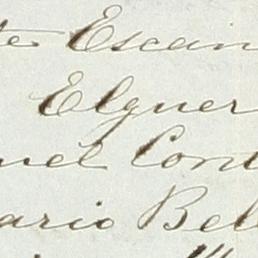 te Escan
Elguer
uel Cont
ario Bel